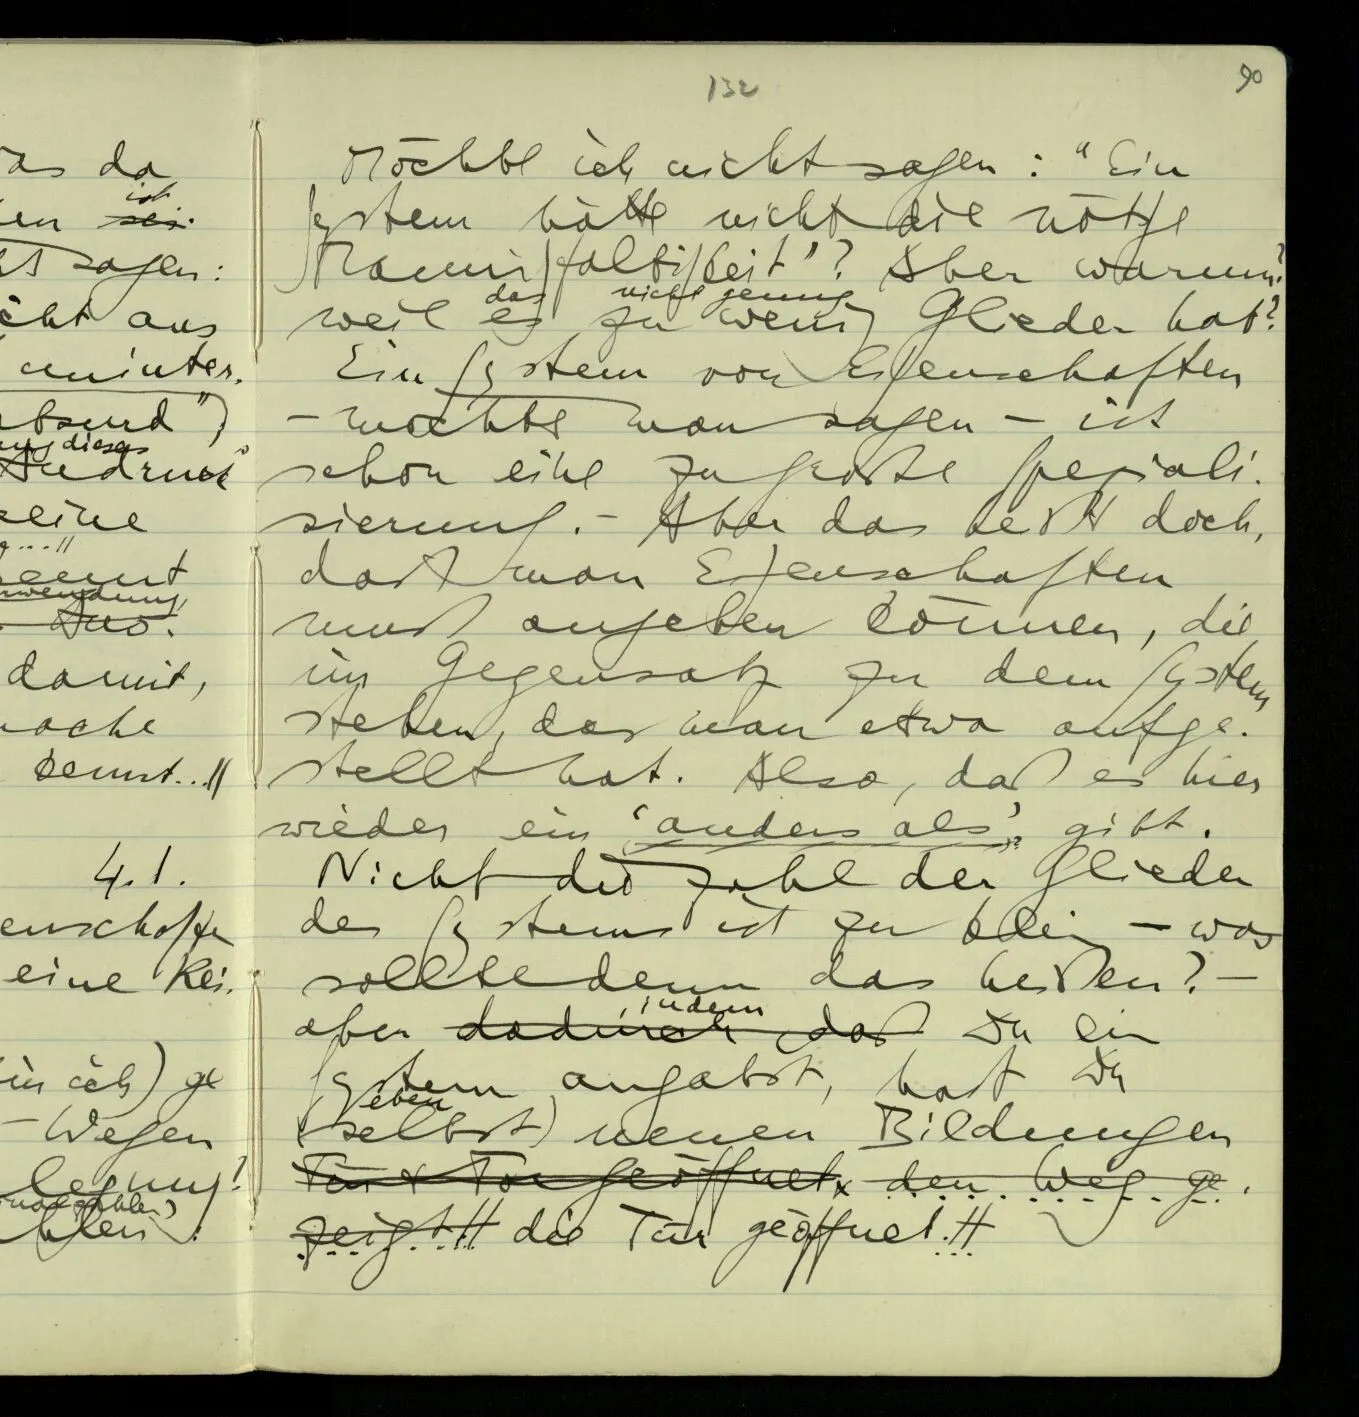 132
90
as da
ich
en sei.
ht sagen:
icht aus
uninter.
absurd")
ung dieses
Ausdruck
seine
g...//
kennt
nwendung,
damit,
mache
kennst..//
4.1.
enschaften
eine Rei.
in ich) ge
– Wegen
legung?
Möchte ich nicht sagen: "Ein
System hätte nicht die nötige
Mannigfaltigkeit"? Aber warum?
das nicht genug
weil es zu wenig Glieder hat?
Ein System von Eigenschaften
– möchte man sagen – ist
schon eine zu große Speziali.
sierung. – Aber das heißt doch,
daß man Eigenschaften
muß angeben können, die
im Gegensatz zu dem System
stehen, das man etwa aufge.
stellt hat. Also, daß es hier
wieder ein 'anders als' gibt.
Nicht die Zahl der Glieder
des Systems ist zu klein – was
sollte denn das heißen? –
, indem
aber dadurch daß Du ein
System angabst, hast Du
eben
(selbst) neuen Bildungen
Tür & Tor geöffnet, den Weg ge.
zeigt // die Tür geöffnet. //